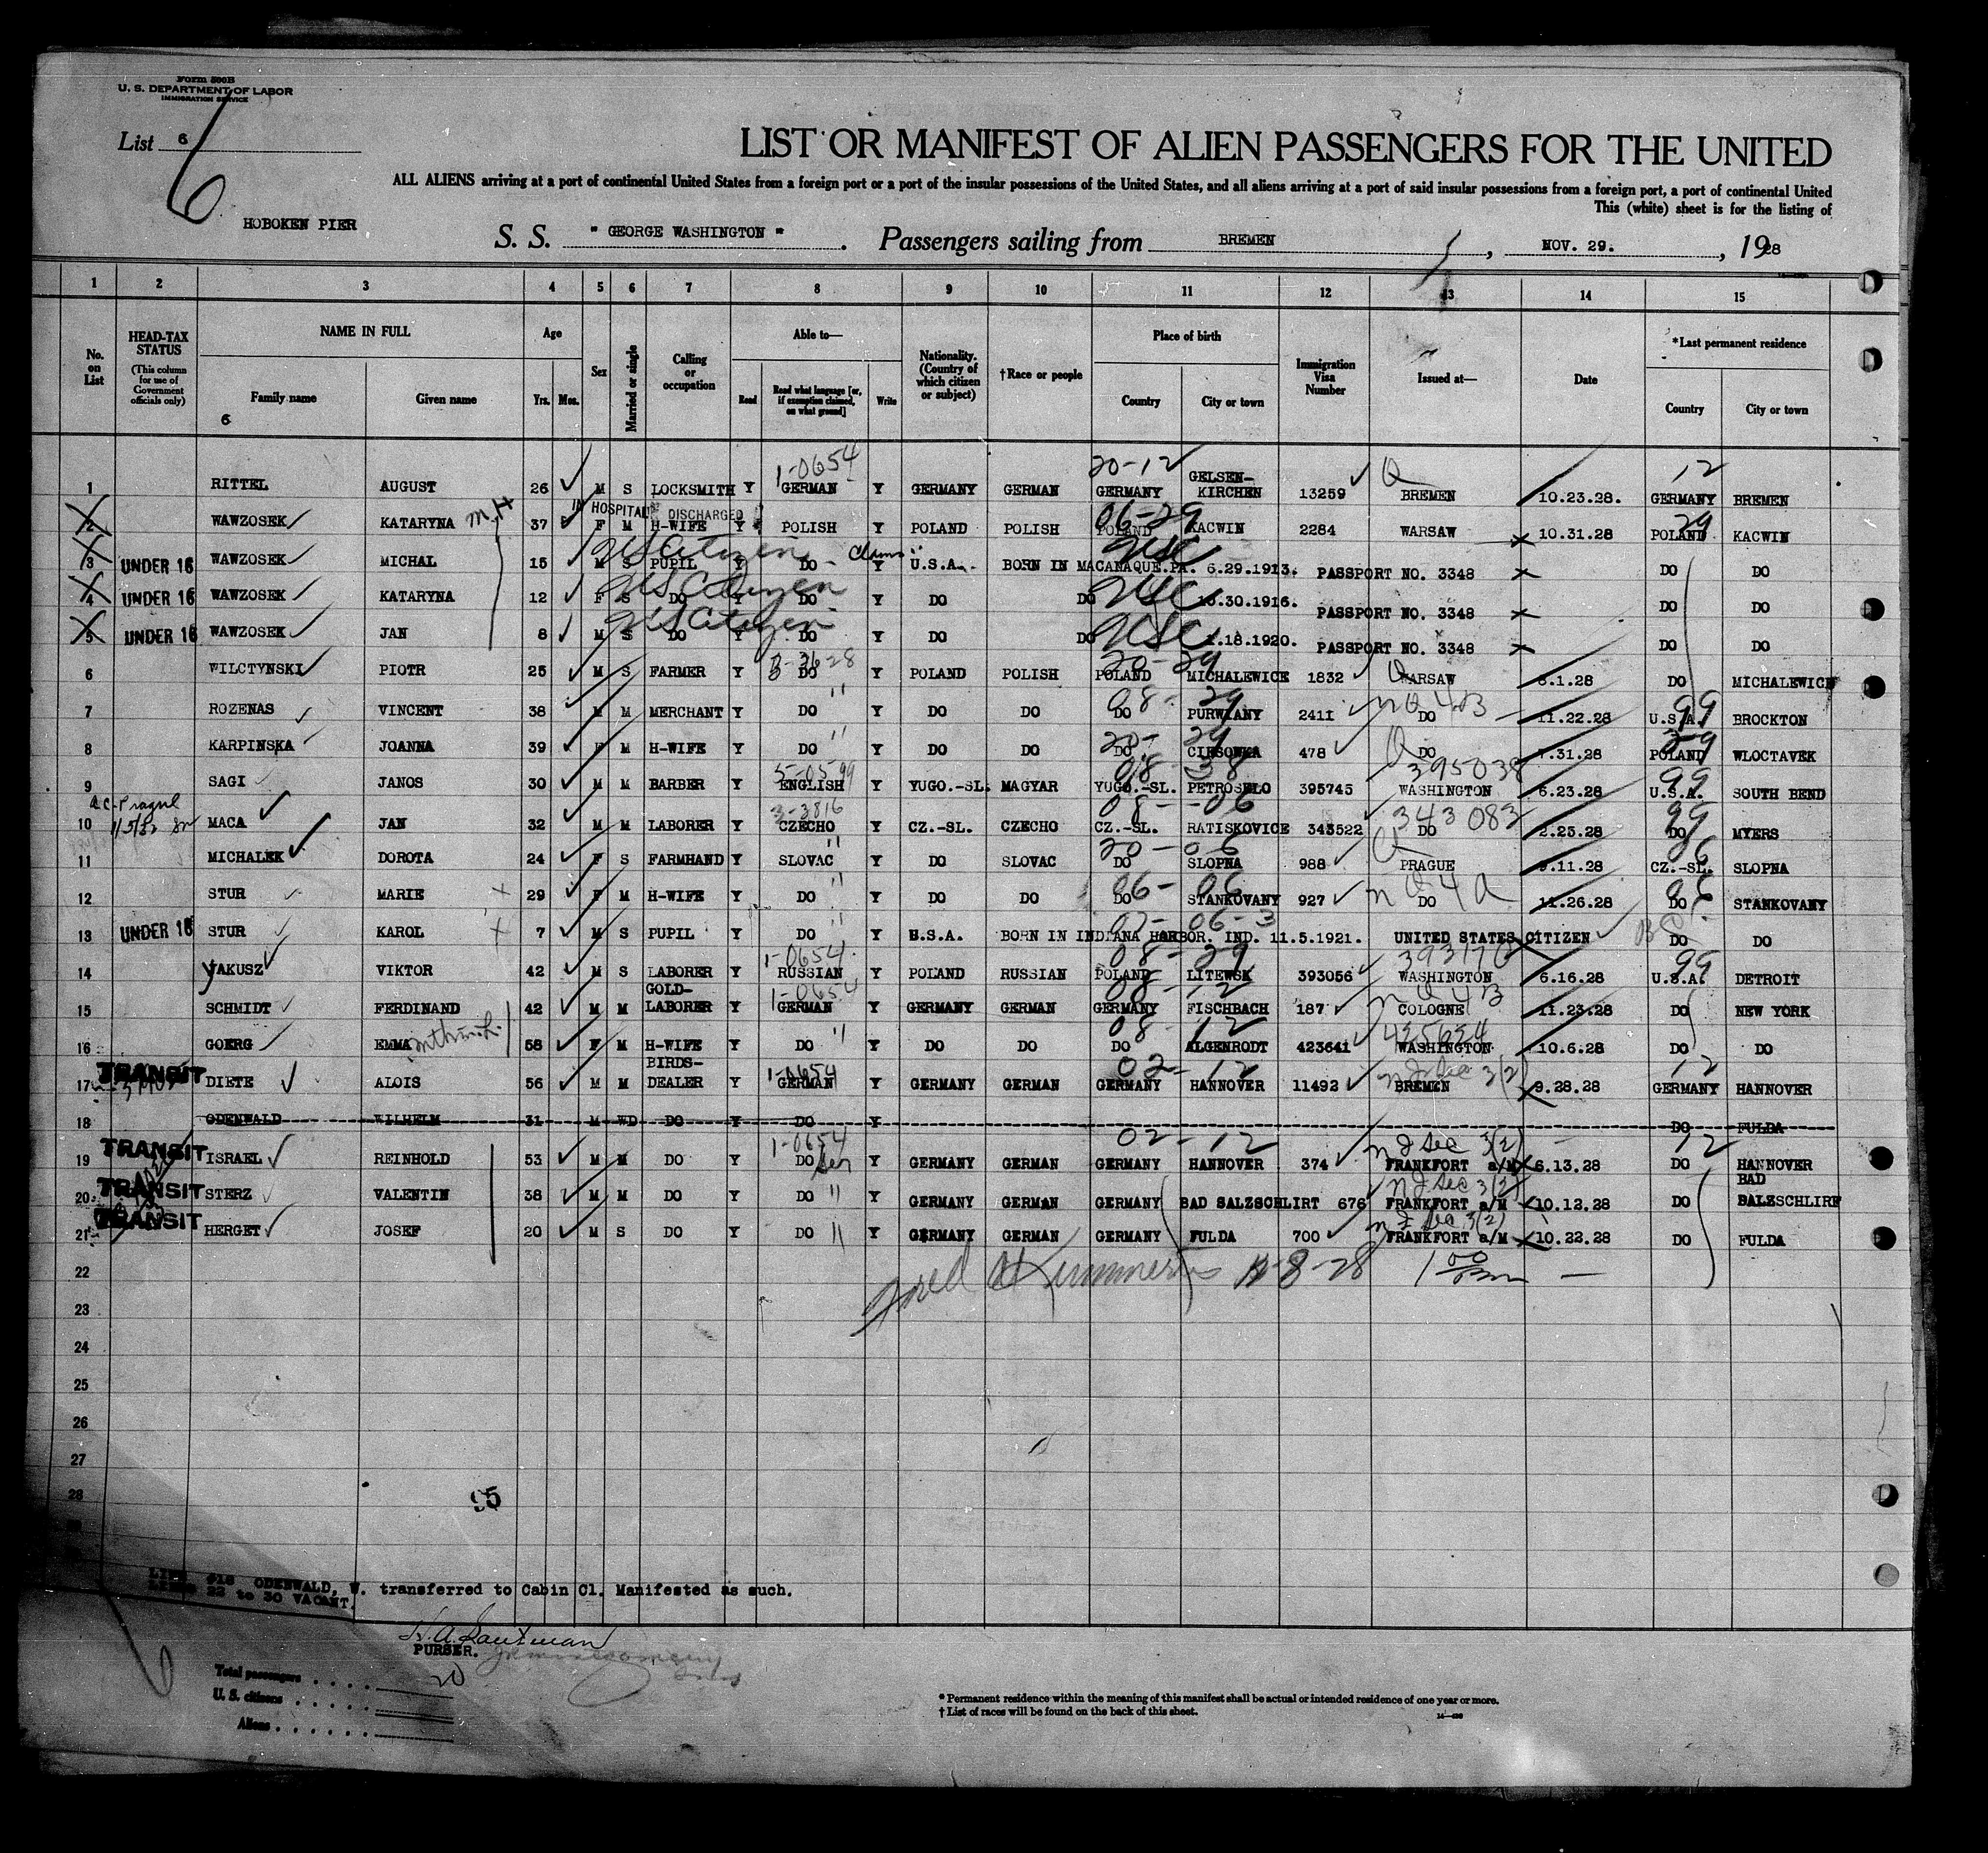 Form 500B
U. S. DEPARTMENT OF LABOR
IMMIGRATION SERVICE
List 6
6
LIST OR MANIFEST OF ALIEN PASSENGERS FOR THE UNITED
ALL ALIENS arriving at a port of continental United States from a foreign port or a port of the insular possessions of the United States, and all aliens arriving at a port of said insular possessions from a foreign port, a port of continental United
This (white) sheet is for the listing of
HOBOKEN PIER
S. S. " GEORGE WASHINGTON " . Passengers sailing from BREMEN , NOV. 29. , 1928
1 2 3 4 5 6 7 8 9 10 11 12 13 14 15
No. on List
HEAD-TAX STATUS
(This column for use of Government officials only)
NAME IN FULL
Family name Given name
6
Age
Yrs. Mos.
Sex
Married or single
Calling or occupation
Able to—
Read Read what language [or, if exemption claimed, on what ground] Write
Nationality. (Country of which citizen or subject)
†Race or people
Place of birth
Country City or town
Immigration Visa Number
Issued at—
Date
*Last permanent residence
Country City or town
1-0654 20-12 12
1 RITTEL AUGUST 26 M S LOCKSMITH Y GERMAN Y GERMANY GERMAN GERMANY GELSEN-KIRCHEN 13259 BREMEN 10.23.28. GERMANY BREMEN
IN HOSPITAL DISCHARGED 06-29 29
2 WAWZOSEK KATARYNA 37 F M H-WIFE Y POLISH Y POLAND POLISH POLAND KACWIN 2284 WARSAW 10.31.28 POLAND KACWIN
US Citizen Claims USC
3 UNDER 16 WAWZOSEK MICHAL 15 M S PUPIL Y DO Y U.S.A. BORN IN MACANAQUE.PA. 6.29.1913. PASSPORT NO. 3348 DO DO
US Citizen USC
4 UNDER 16 WAWZOSEK KATARYNA 12 F S DO Y DO Y DO DO 10.30.1916. PASSPORT NO. 3348 DO DO
US Citizen USC
5 UNDER 16 WAWZOSEK JAN 8 M S DO Y DO Y DO DO .18.1920. PASSPORT NO. 3348 DO DO
20-29
6 WILCTYNSKI PIOTR 25 M S FARMER Y DO Y POLAND POLISH POLAND MICHALEWICE 1832 WARSAW .1.28 DO MICHALEWICE
08-29 99
7 ROZENAS VINCENT 38 M M MERCHANT Y DO Y DO DO DO PURWIANY 2411 DO 11.22.28 U.S.A. BROCKTON
20-29 29
8 KARPINSKA JOANNA 39 F M H-WIFE Y DO Y DO DO DO CIRSONKA 478 DO 7.31.28 POLAND WLOCTAVEK
5-0599 08-38 395038 99
9 SAGI JANOS 30 M M BARBER Y ENGLISH Y YUGO.-SL. MAGYAR YUGO.-SL. PETROSELO 395745 WASHINGTON 6.23.28 U.S.A. SOUTH BEND
3-3816 08-06 343083 99
10 MACA JAN 32 M M LABORER Y CZECHO Y CZ.-SL. CZECHO CZ.-SL. RATISKOVICE 343522 DO 2.23.28 DO MYERS
20-06 06
11 MICHALEK DOROTA 24 F S FARMHAND Y SLOVAC Y DO SLOVAC DO SLOPNA 988 PRAGUE .11.28 CZ.-SL. SLOPNA
06-06 06
12 STUR MARIE 29 F M H-WIFE Y DO Y DO DO DO STANKOVANY 927 DO 11.26.28 DO STANKOVANY
13 UNDER 16 STUR KAROL 7 M S PUPIL Y DO Y U.S.A. BORN IN INDIANA HARBOR. IND. 11.5.1921. UNITED STATES CITIZEN DO DO
1-0654 08-29 99
14 YAKUSZ VIKTOR 42 M S LABORER Y RUSSIAN Y POLAND RUSSIAN POLAND LITEWSK 393056 WASHINGTON 6.16.28 U.S.A. DETROIT
1-0654 08-12
15 SCHMIDT FERDINAND 42 M M GOLD-LABORER Y GERMAN Y GERMANY GERMAN GERMANY FISCHBACH 187 COLOGNE 11.23.28 DO NEW YORK
08-12
16 GOERG EMMA 58 F M H-WIFE Y DO Y DO DO DO ALGENRODT 423641 WASHINGTON 10.6.28 DO DO
1-0654 02-12 12
17 TRANSIT DIETE ALOIS 56 M M BIRDS-DEALER Y GERMAN Y GERMANY GERMAN GERMANY HANNOVER 11492 BREMEN 9.28.28 GERMANY HANNOVER
18 ODENWALD WILHELM 31 M WD DO Y DO Y DO FULDA
1-0654 02-12 12
19 TRANSIT ISRAEL REINHOLD 53 M M DO Y DO Y GERMANY GERMAN GERMANY HANNOVER 374 FRANKFORT a/M 6.13.28 DO HANNOVER
20 TRANSIT STERZ VALENTIN 38 M M DO Y DO Y GERMANY GERMAN GERMANY BAD SALZSCHLIRT 676 FRANKFORT a/M 10.12.28 DO BAD SALZSCHLIRF
21 TRANSIT HERGET JOSEF 20 M S DO Y DO Y GERMANY GERMAN GERMANY FULDA 700 FRANKFORT a/M 10.22.28 DO FULDA
22
23
24
25
26
27
28
95
LINE #18 ODENWALD, W. transferred to Cabin Cl. Manifested as such.
LINES 22 to 30 VACANT.
PURSER.
Total passengers . . . . 20
U. S. citizens . . . . .
Aliens . . . . . .
* Permanent residence within the meaning of this manifest shall be actual or intended residence of one year or more.
† List of races will be found on the back of this sheet.